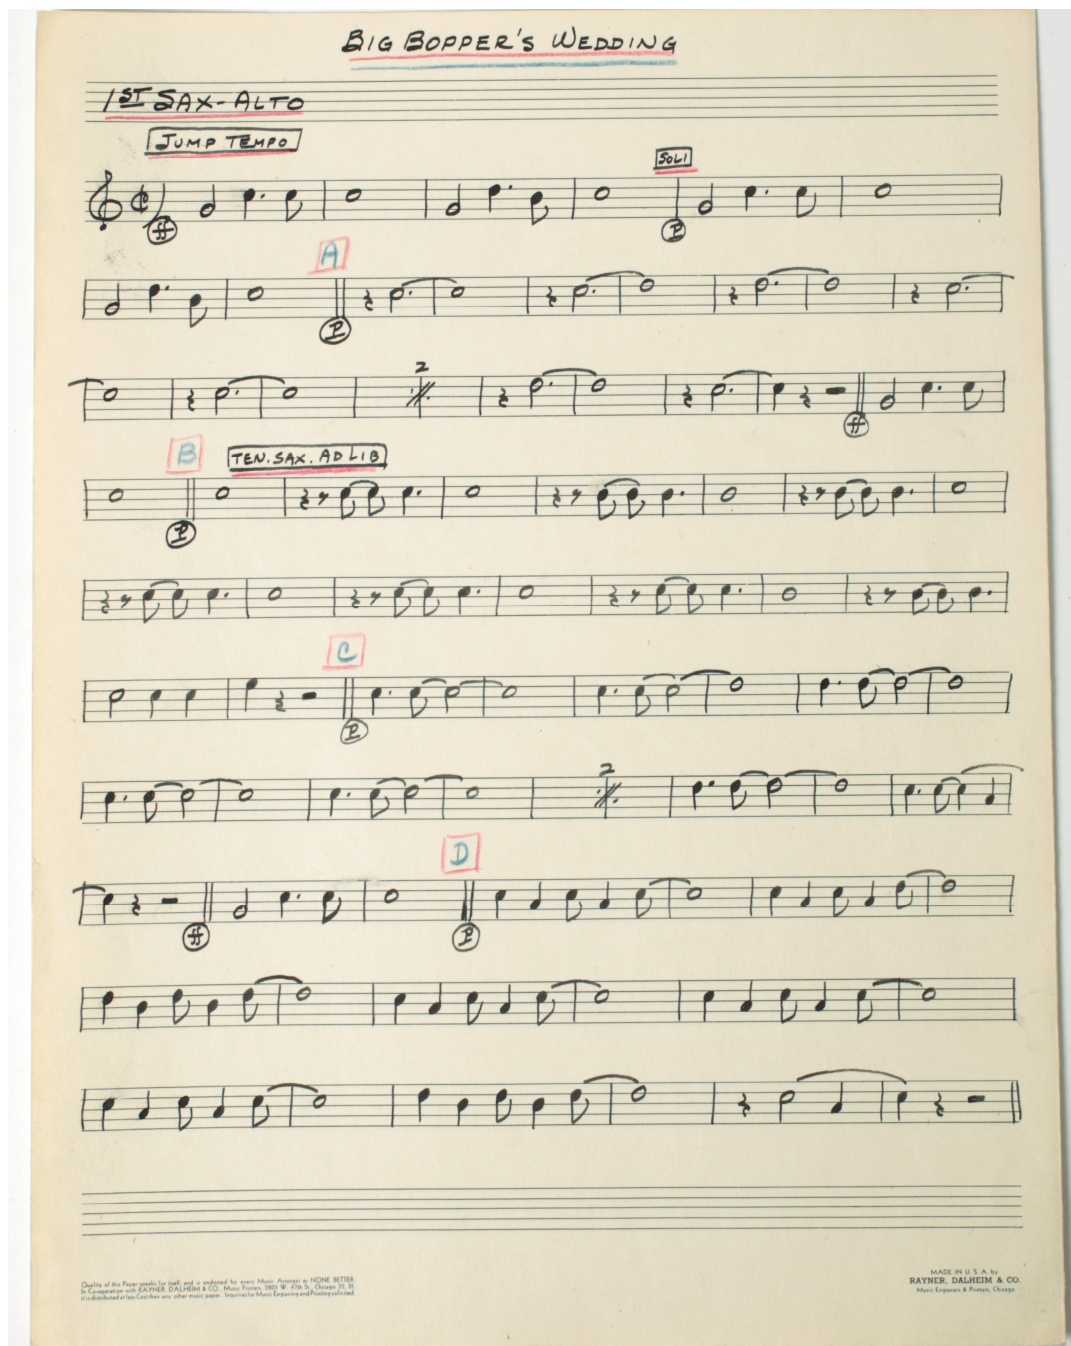 BIG BOPPER'S WEDDING
1ST SAX-ALTO
JUMP TEMPO
SOLI
ff
P
A
P
2
ff
B
TEN. SAX. AD LIB
P
C
P
2
D
ff
P
Quality of this Paper speaks for itself and is endorsed by every Music Arranger as NONE BETTER.
In Co-operation with RAYNER, DALHEIM & CO., Music Printers, 2801 W. 47th St., Chicago 32, Ill.
it is distributed at less Cost than any other music paper. Inquiries for Music Engraving and Printing solicited.
MADE IN U. S. A. by
RAYNER, DALHEIM & CO.
Music Engravers & Printers, Chicago